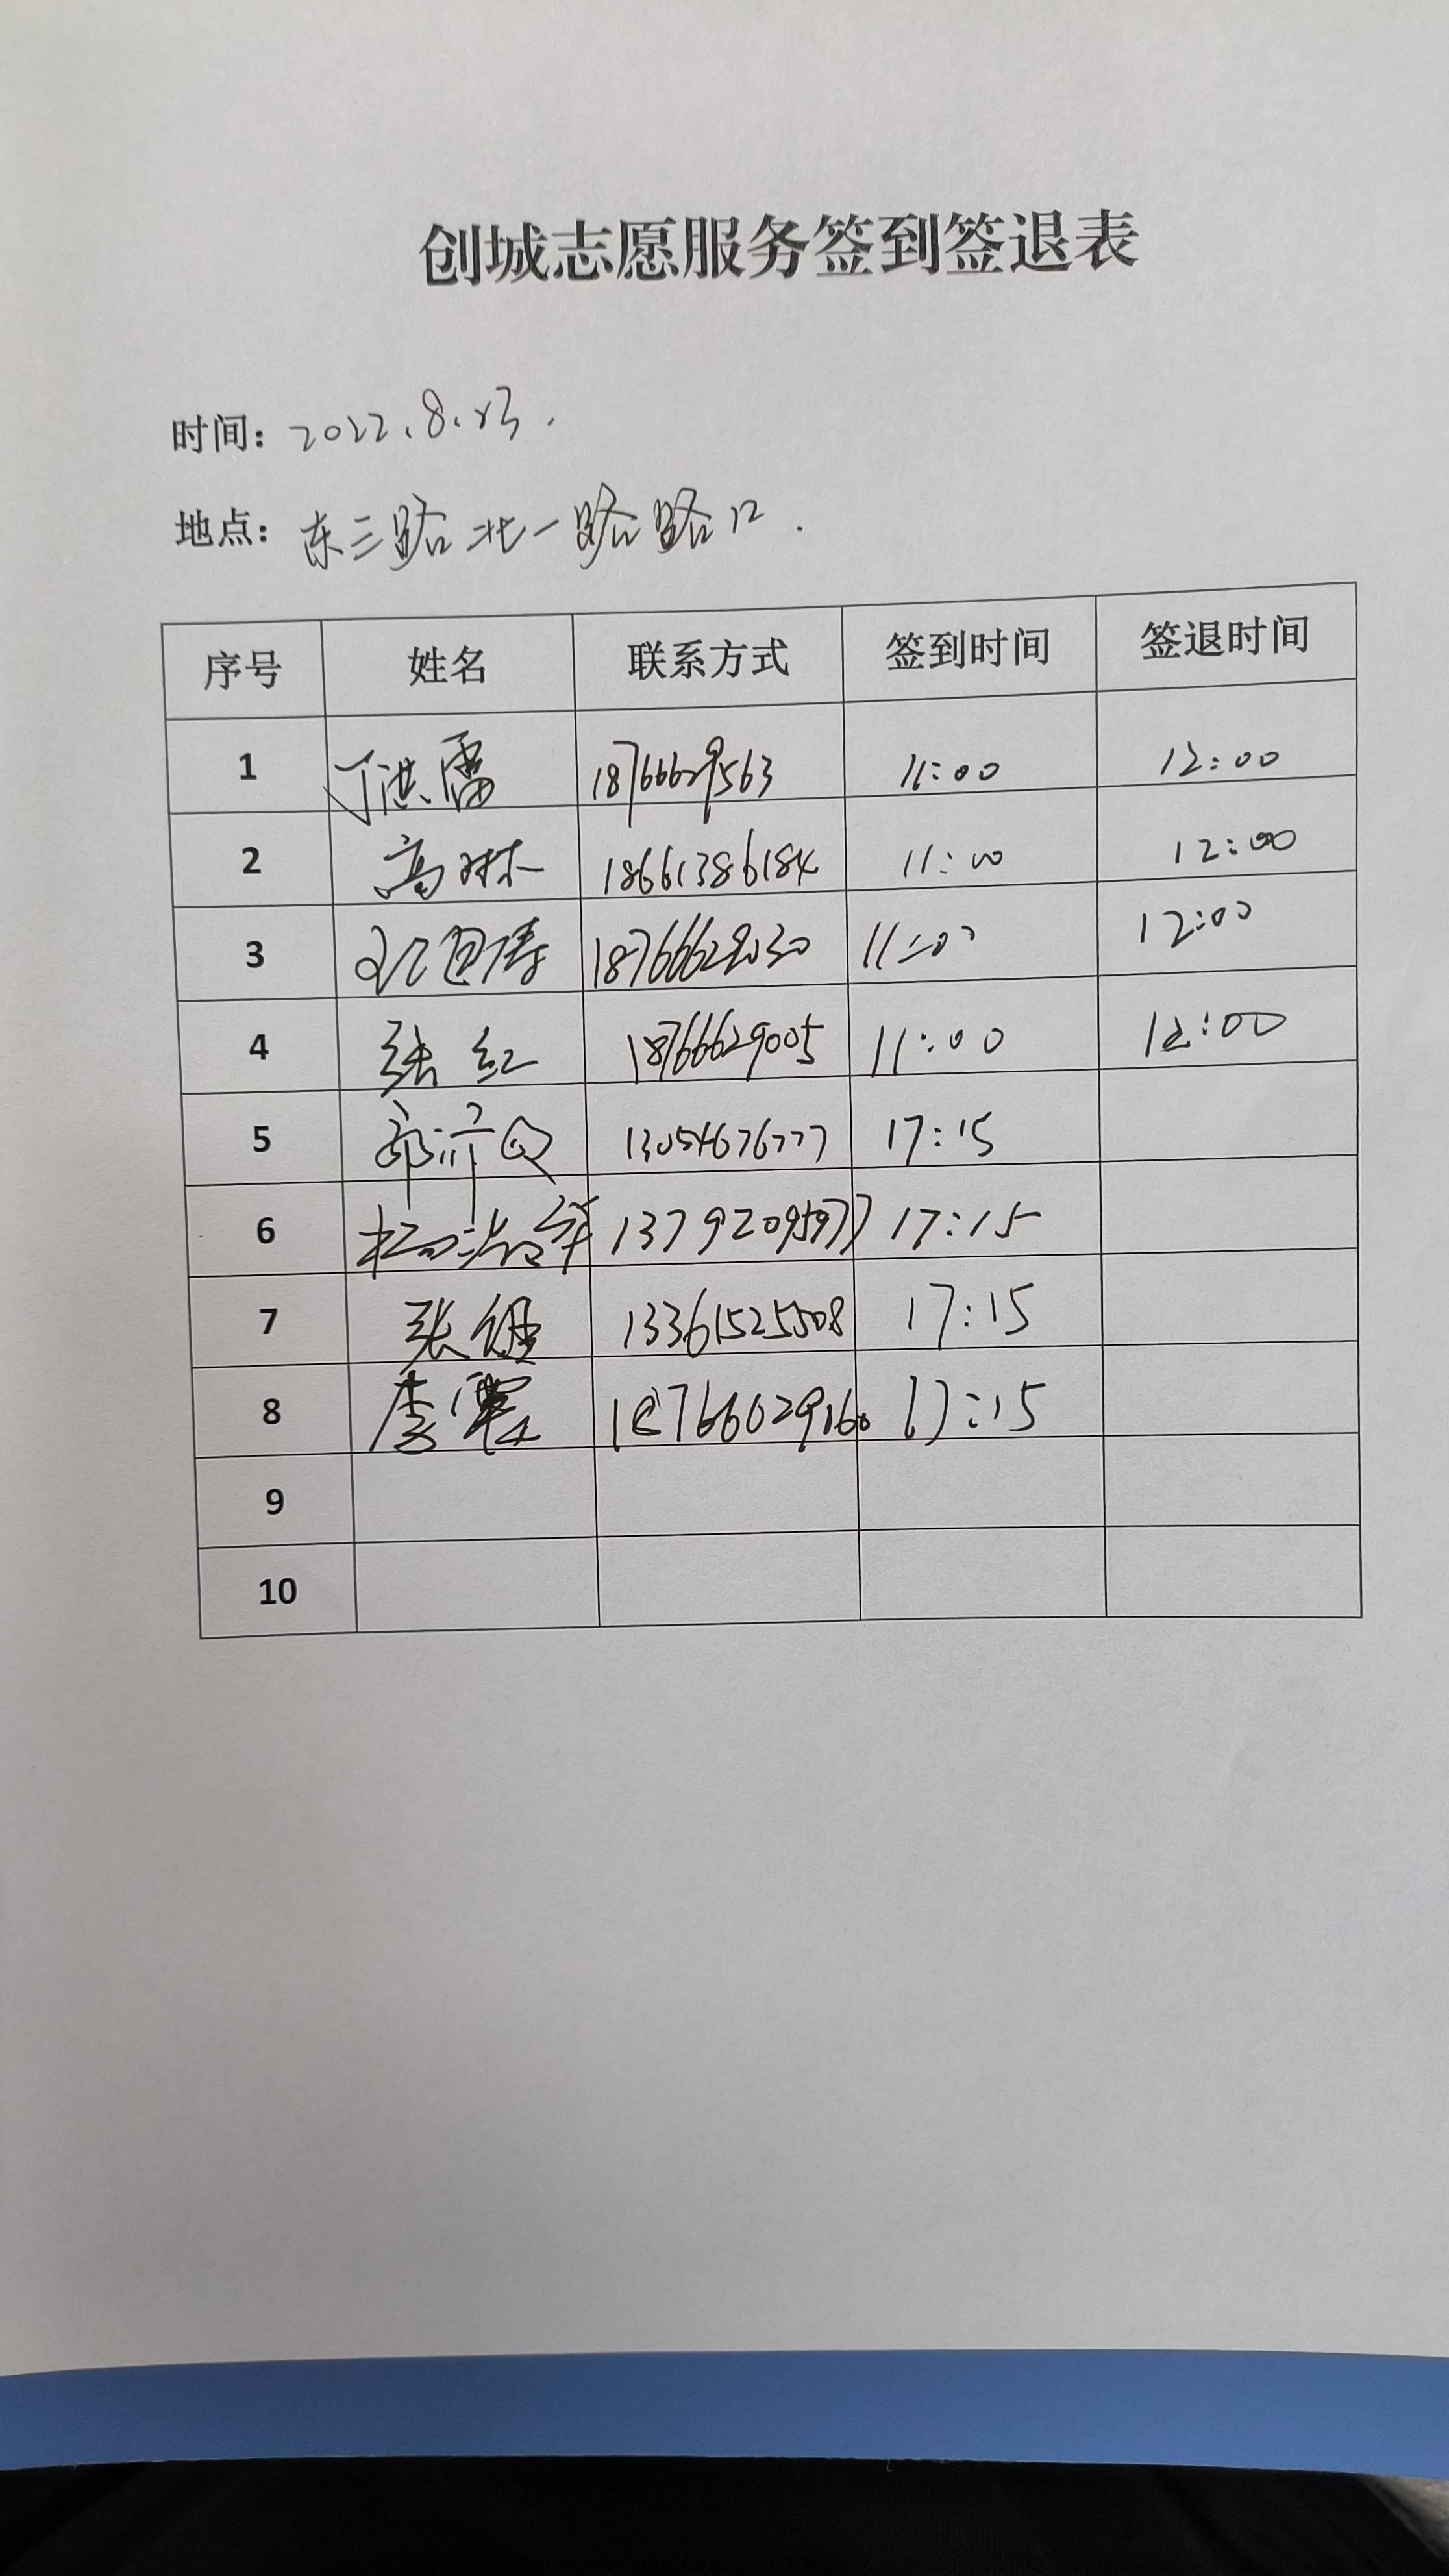 创城志愿服务签到签退表
时间：2022.8.23.
地点：东三路北一路路口.
序号 姓名 联系方式 签到时间 签退时间
1 丁洪雷 18766629563 11:00 12:00
2 高琳 18661386184 11:00 12:00
3 18766629030 11:00 12:00
4 张红 18766629005 11:00 12:00
5 13054676777 17:15
6 13792095977 17:15
7 张健 13361525508 17:15
8 李军 18766629160 17:15
9
10